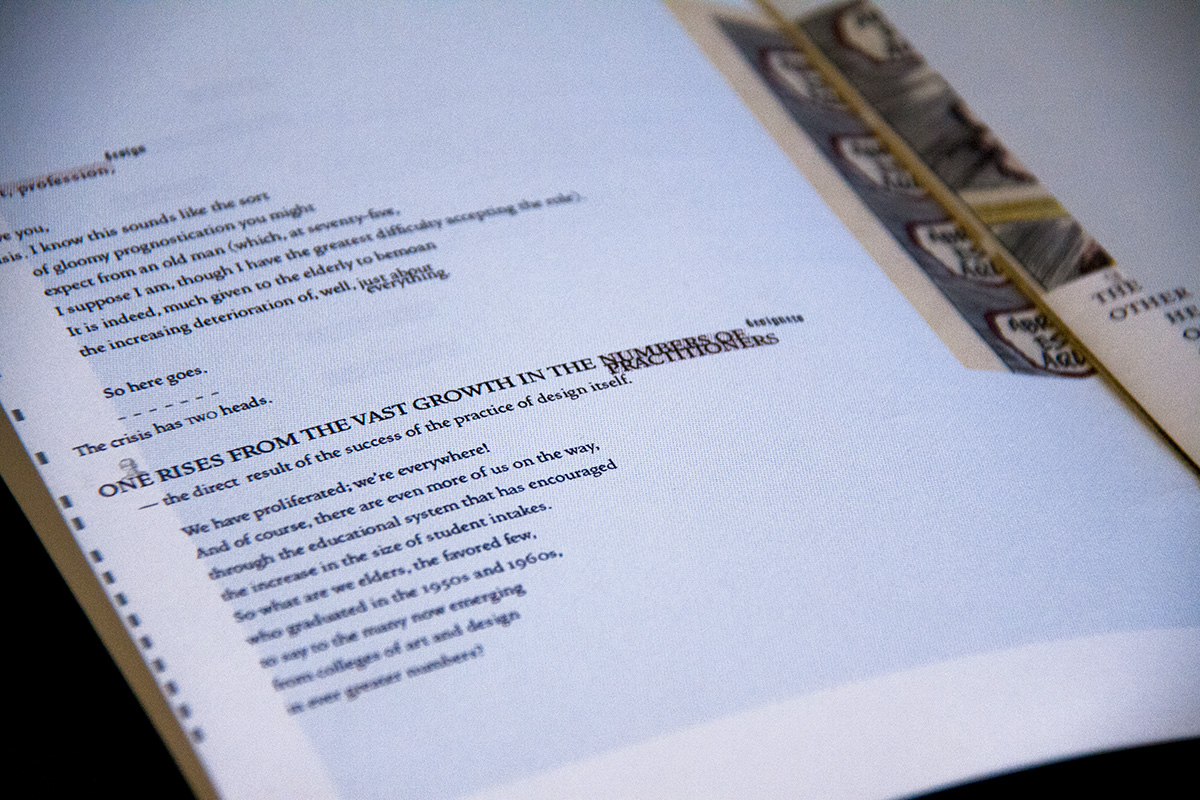 design
profession,
you,
I know this sounds like the sort
of gloomy prognostication you might
expect from an old man (which, at seventy-five,
I suppose I am, though I have the greatest difficulty accepting the role).
It is indeed, much given to the elderly to bemoan
the increasing deterioration of, well, just about
everything.
So here goes.
- - - - - - -
The crisis has TWO heads.
designers
ONE RISES FROM THE VAST GROWTH IN THE NUMBERS OF
PRACTITIONERS
— the direct result of the success of the practice of design itself.
We have proliferated; we're everywhere!
And of course, there are even more of us on the way,
through the educational system that has encouraged
the increase in the size of student intakes.
So what are we elders, the favored few,
who graduated in the 1950s and 1960s,
to say to the many now emerging
from colleges of art and design
in ever greater numbers?
THE
OTHER